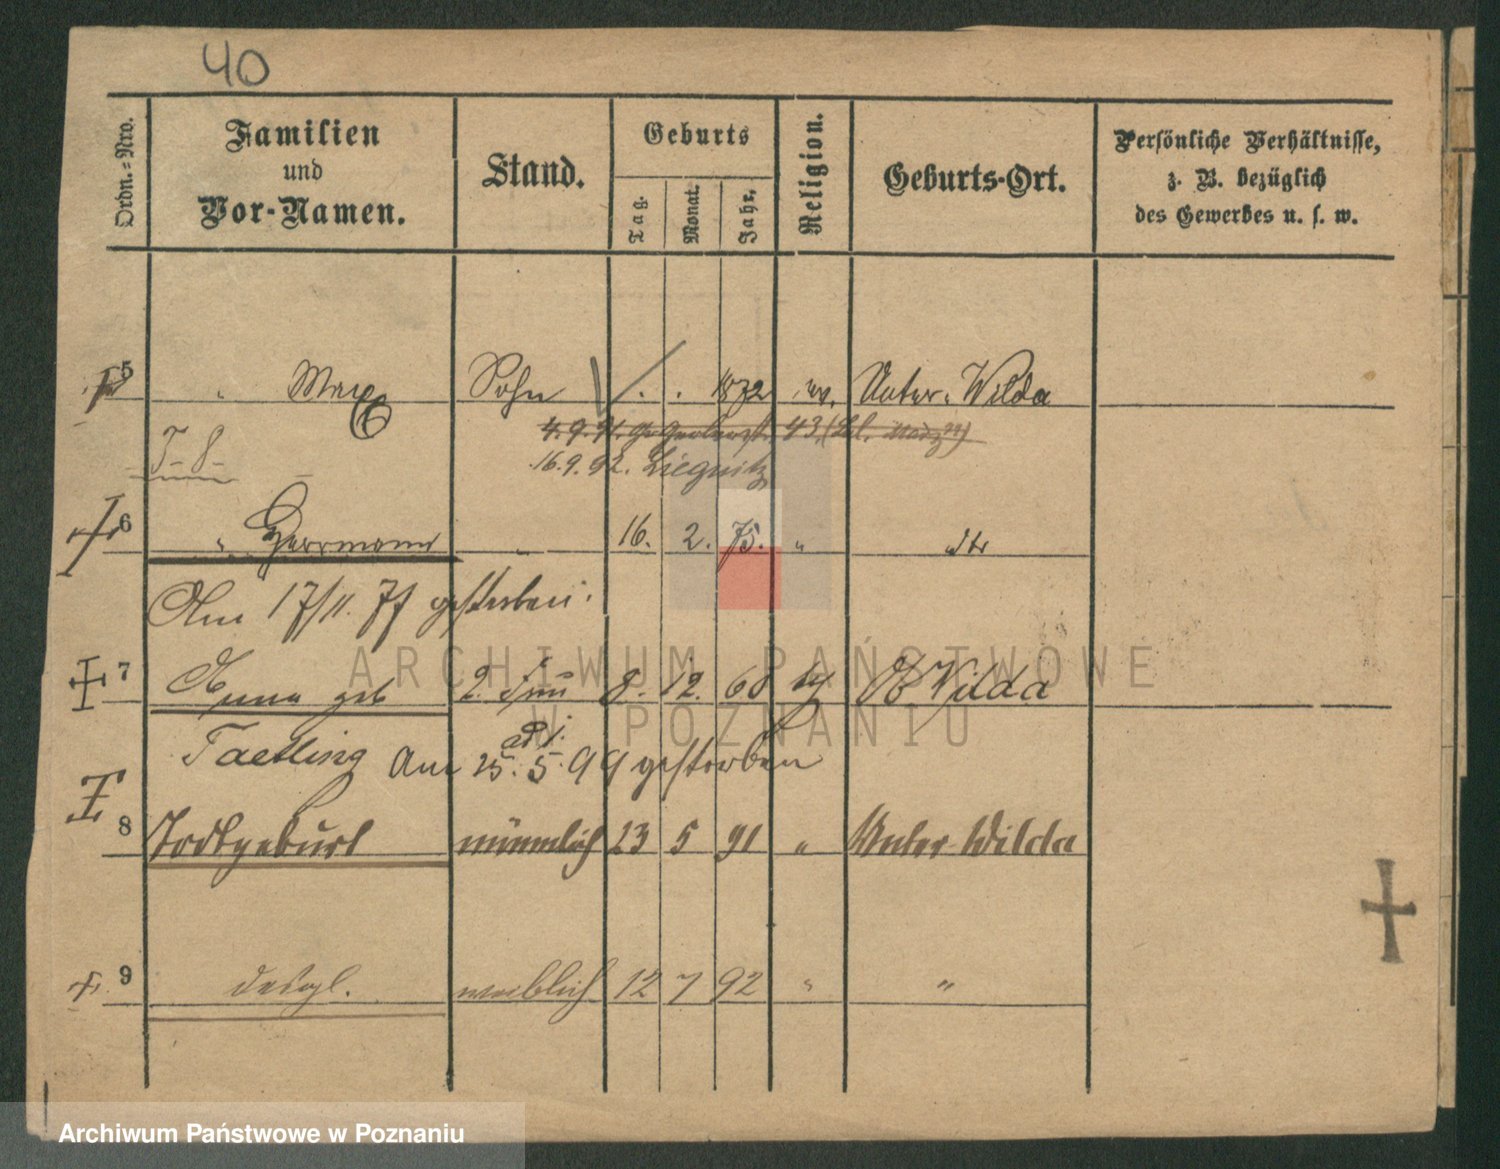 40
Ordn.-Nro.
Familien
und
Vor-Namen.
Stand.
Geburts
Tag.
Monat.
Jahr.
Religion.
Geburts-Ort.
Persönliche Verhältnisse,
z. B. bezüglich
des Gewerbes u. s. w.
5 " Max Sohn . . 1872 ev. Unter-Wilda
4. 9. 91. 43
16. 9. 92. Liegnitz
6 " Herrmann " 16. 2. 75. " dto
Am 17/11. 77 gestorben.
7 Anna geb 2. Frau 8. 12. 68 O/ Wilda
Taetling Am 25. 5. 99 gestorben
8 Todtgeburt männlich 23 5 91 " Unter Wilda
9 desgl. weiblich 12 7 92 " "
ARCHIWUM PAŃSTWOWE
W POZNANIU
Archiwum Państwowe w Poznaniu